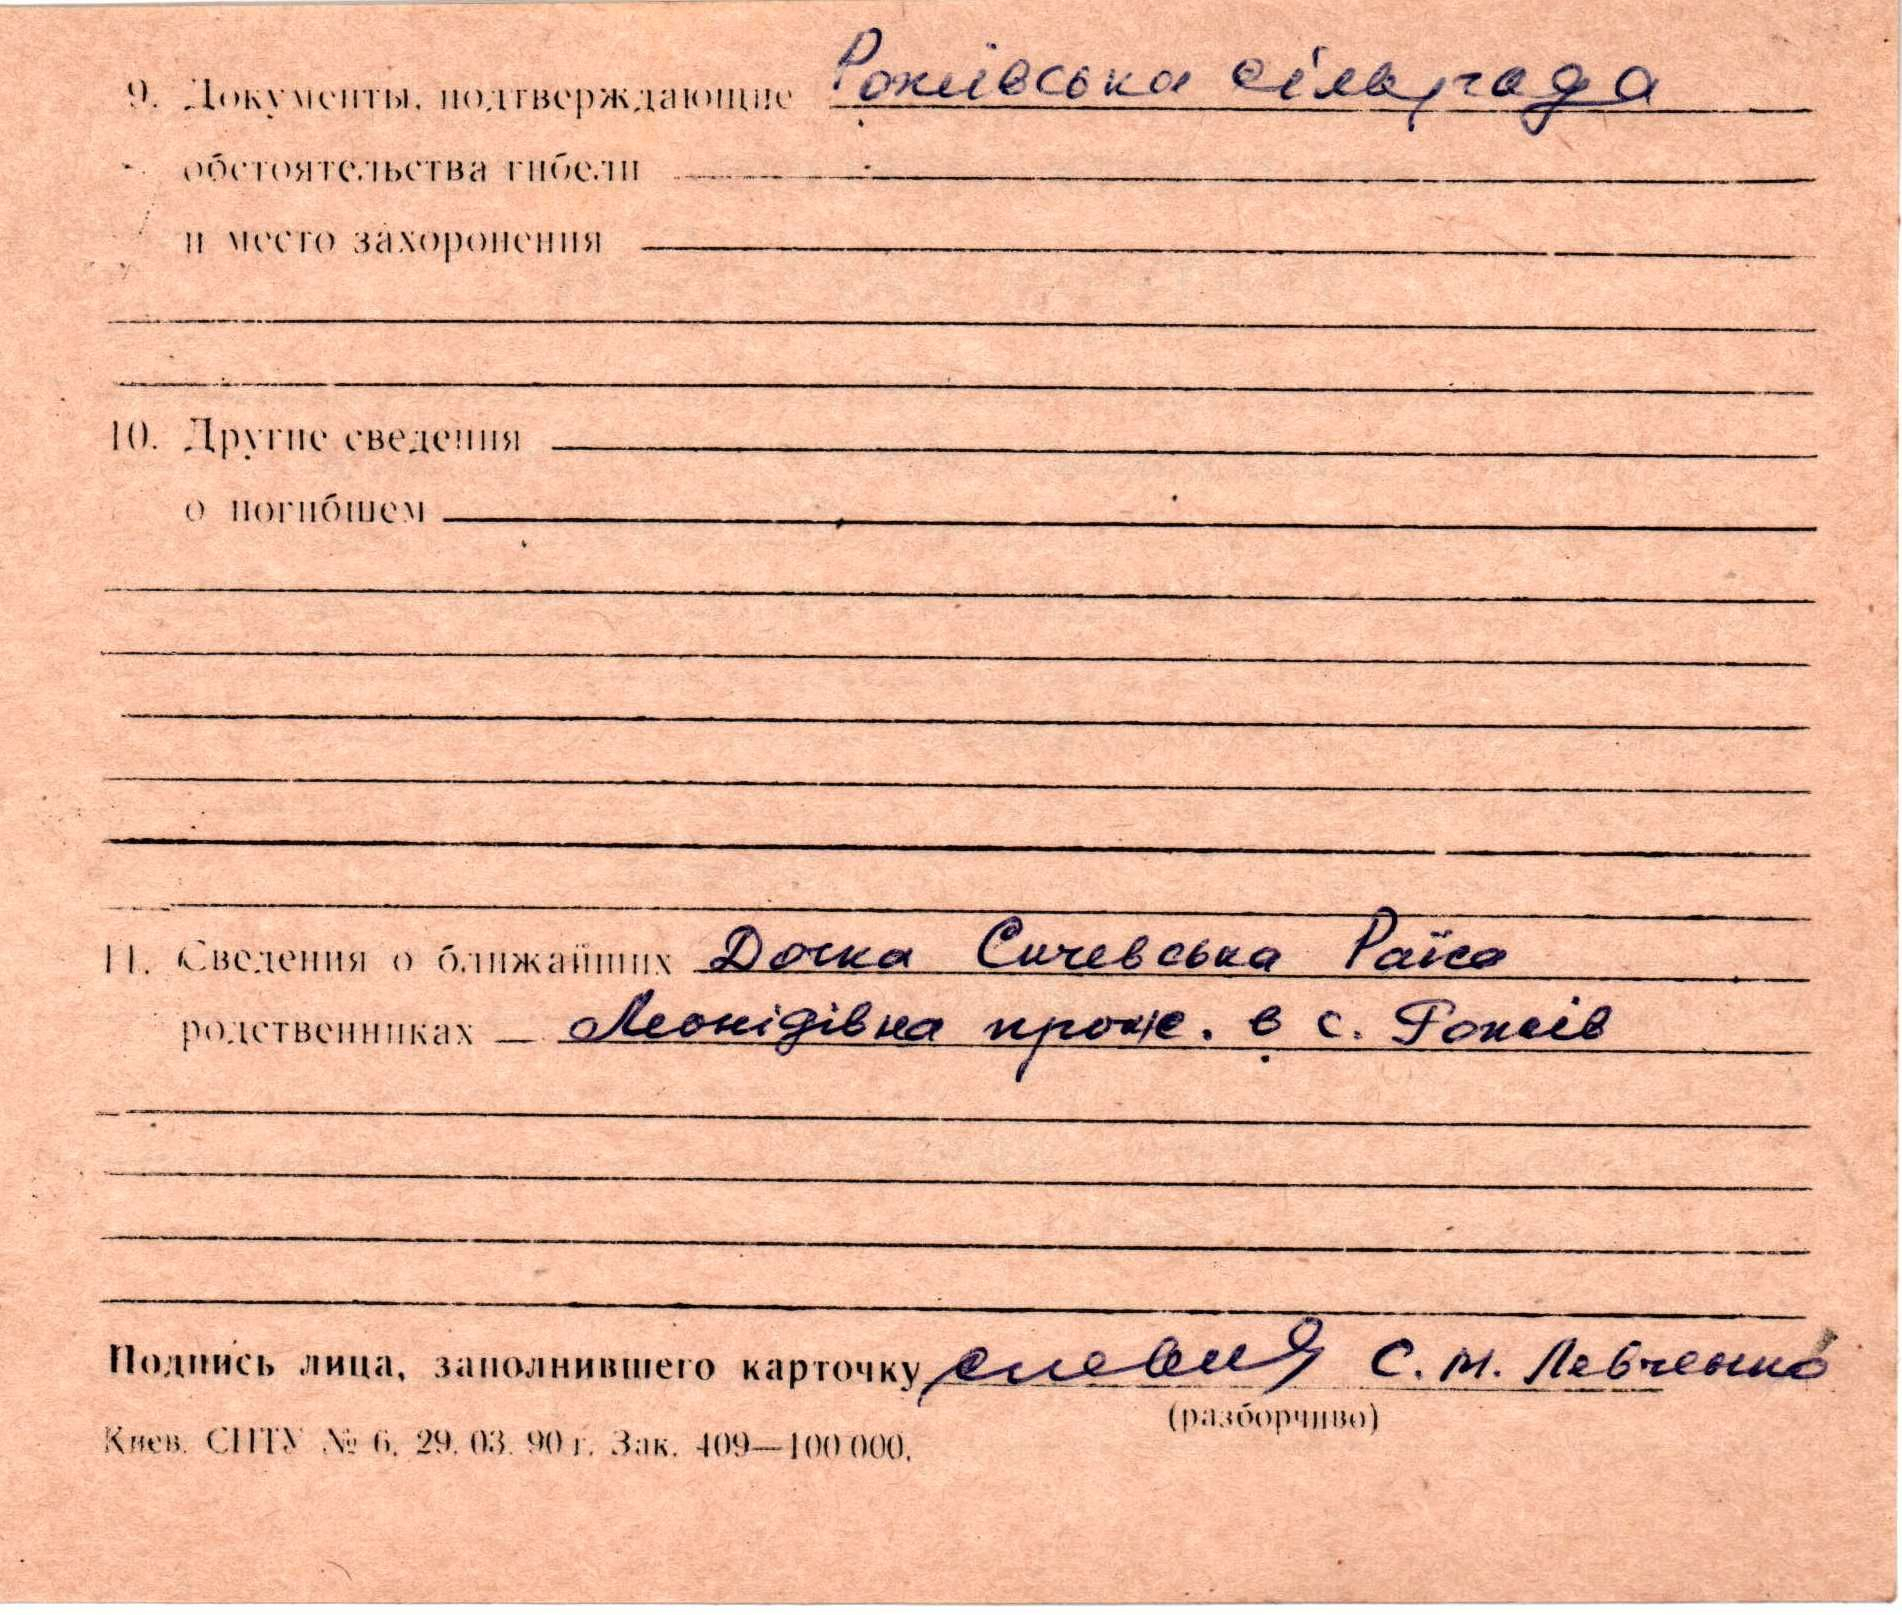 9. Документы, подтверждающие Рожівська сільрада
обстоятельства гибели
и место захоронения
10. Другие сведения
о погибшем
11. Сведения о ближайших Дочка Сичевська Раїса
родственниках Леонідівна прож. в с. Рожів
Подпись лица, заполнившего карточку С. М. Левченко
(разборчиво)
Киев. СПТУ № 6. 29. 03. 90 г. Зак. 409—100 000.